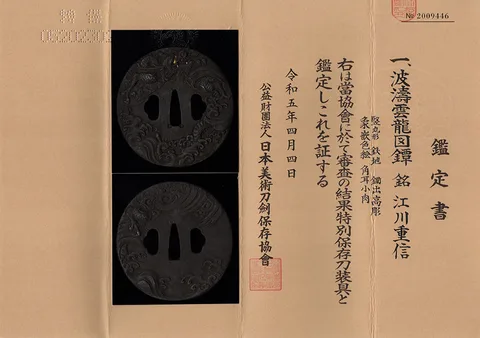 № 2009446
鑑定書
一、波濤雲龍図鐔 銘 江川重信
竪丸形 鉄地 鋤出高彫
象嵌色絵 角耳小肉
右は當協會に於て審査の結果特別保存刀装具と
鑑定しこれを証する
令和五年四月四日
公益財團法人 日本美術刀劍保存協會